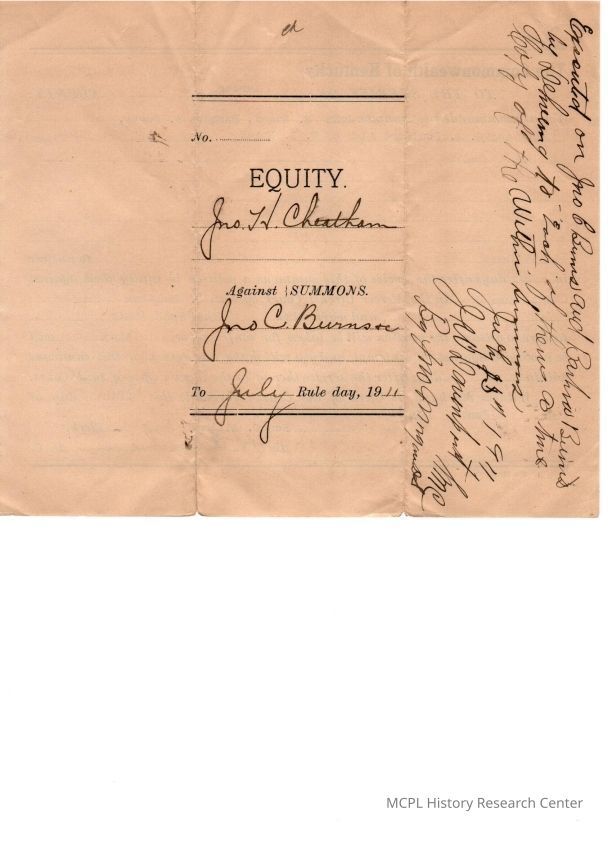 No.
EQUITY.
Jno. H. Cheatham
Against } SUMMONS.
Jno C. Burns &c
To July Rule day, 1911
Executed on Jno C Burns and Barbra Burns
by Delivering to Each of them a true
Copy of the Within Summons
July 28" 1911
Jno Davenport
By Jno
MCPL History Research Center